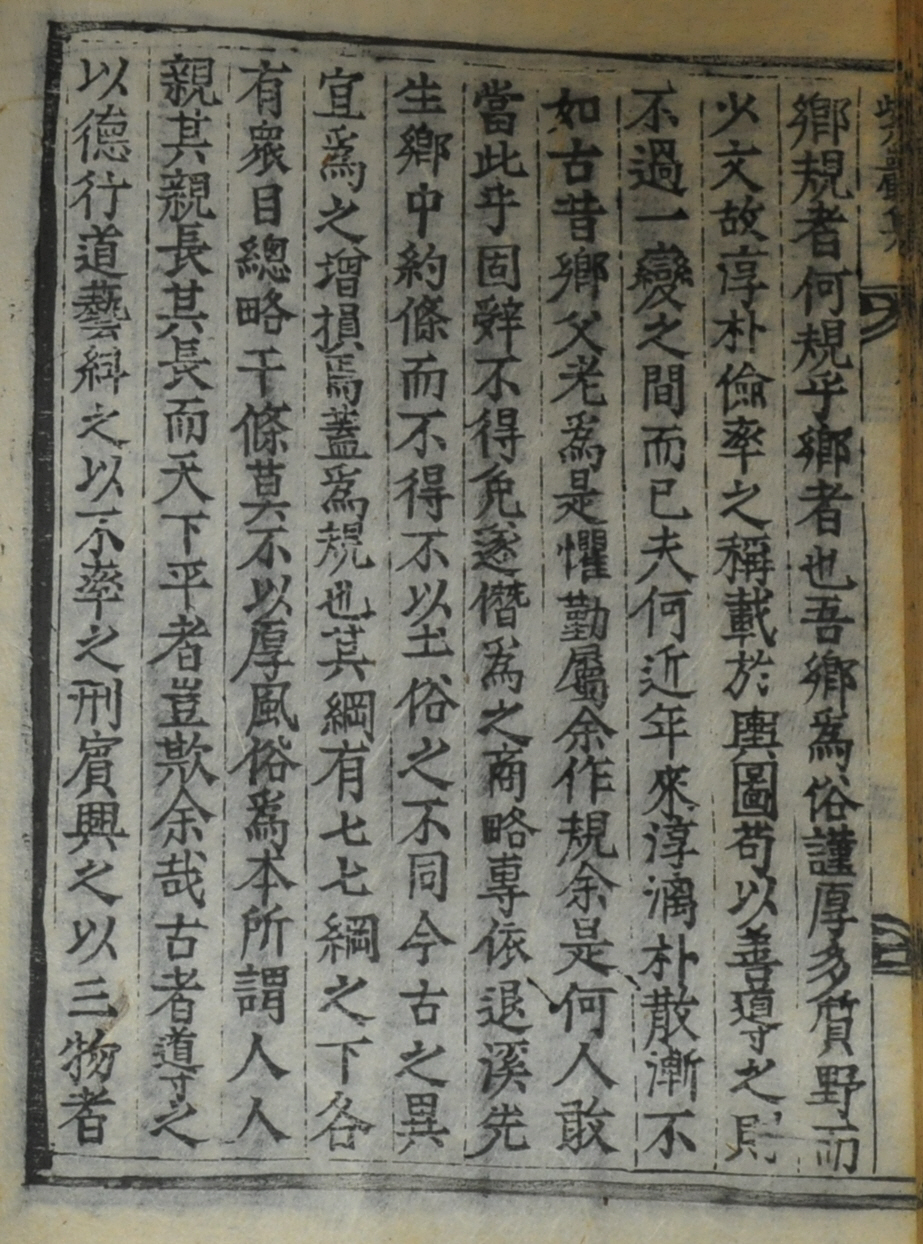 鄉規者何規乎鄉者也吾鄉爲俗謹厚多質野而
少文故淳朴儉率之稱載於輿圖苟以善導之則
不過一變之間而已夫何近年來淳漓朴散漸不
如古昔鄉父老爲是懼勤屬余作規余是何人敢
當此乎固辭不得免遂僭爲之商略專依退溪先
生鄉中約條而不得不以土俗之不同今古之異
宜爲之增損焉蓋爲規也其綱有七七綱之下各
有衆目總略干條莫不以厚風俗爲本所謂人人
親其親長其長而天下平者豈欺余哉古者導之
以德行道藝糾之以不率之刑賓興之以三物者